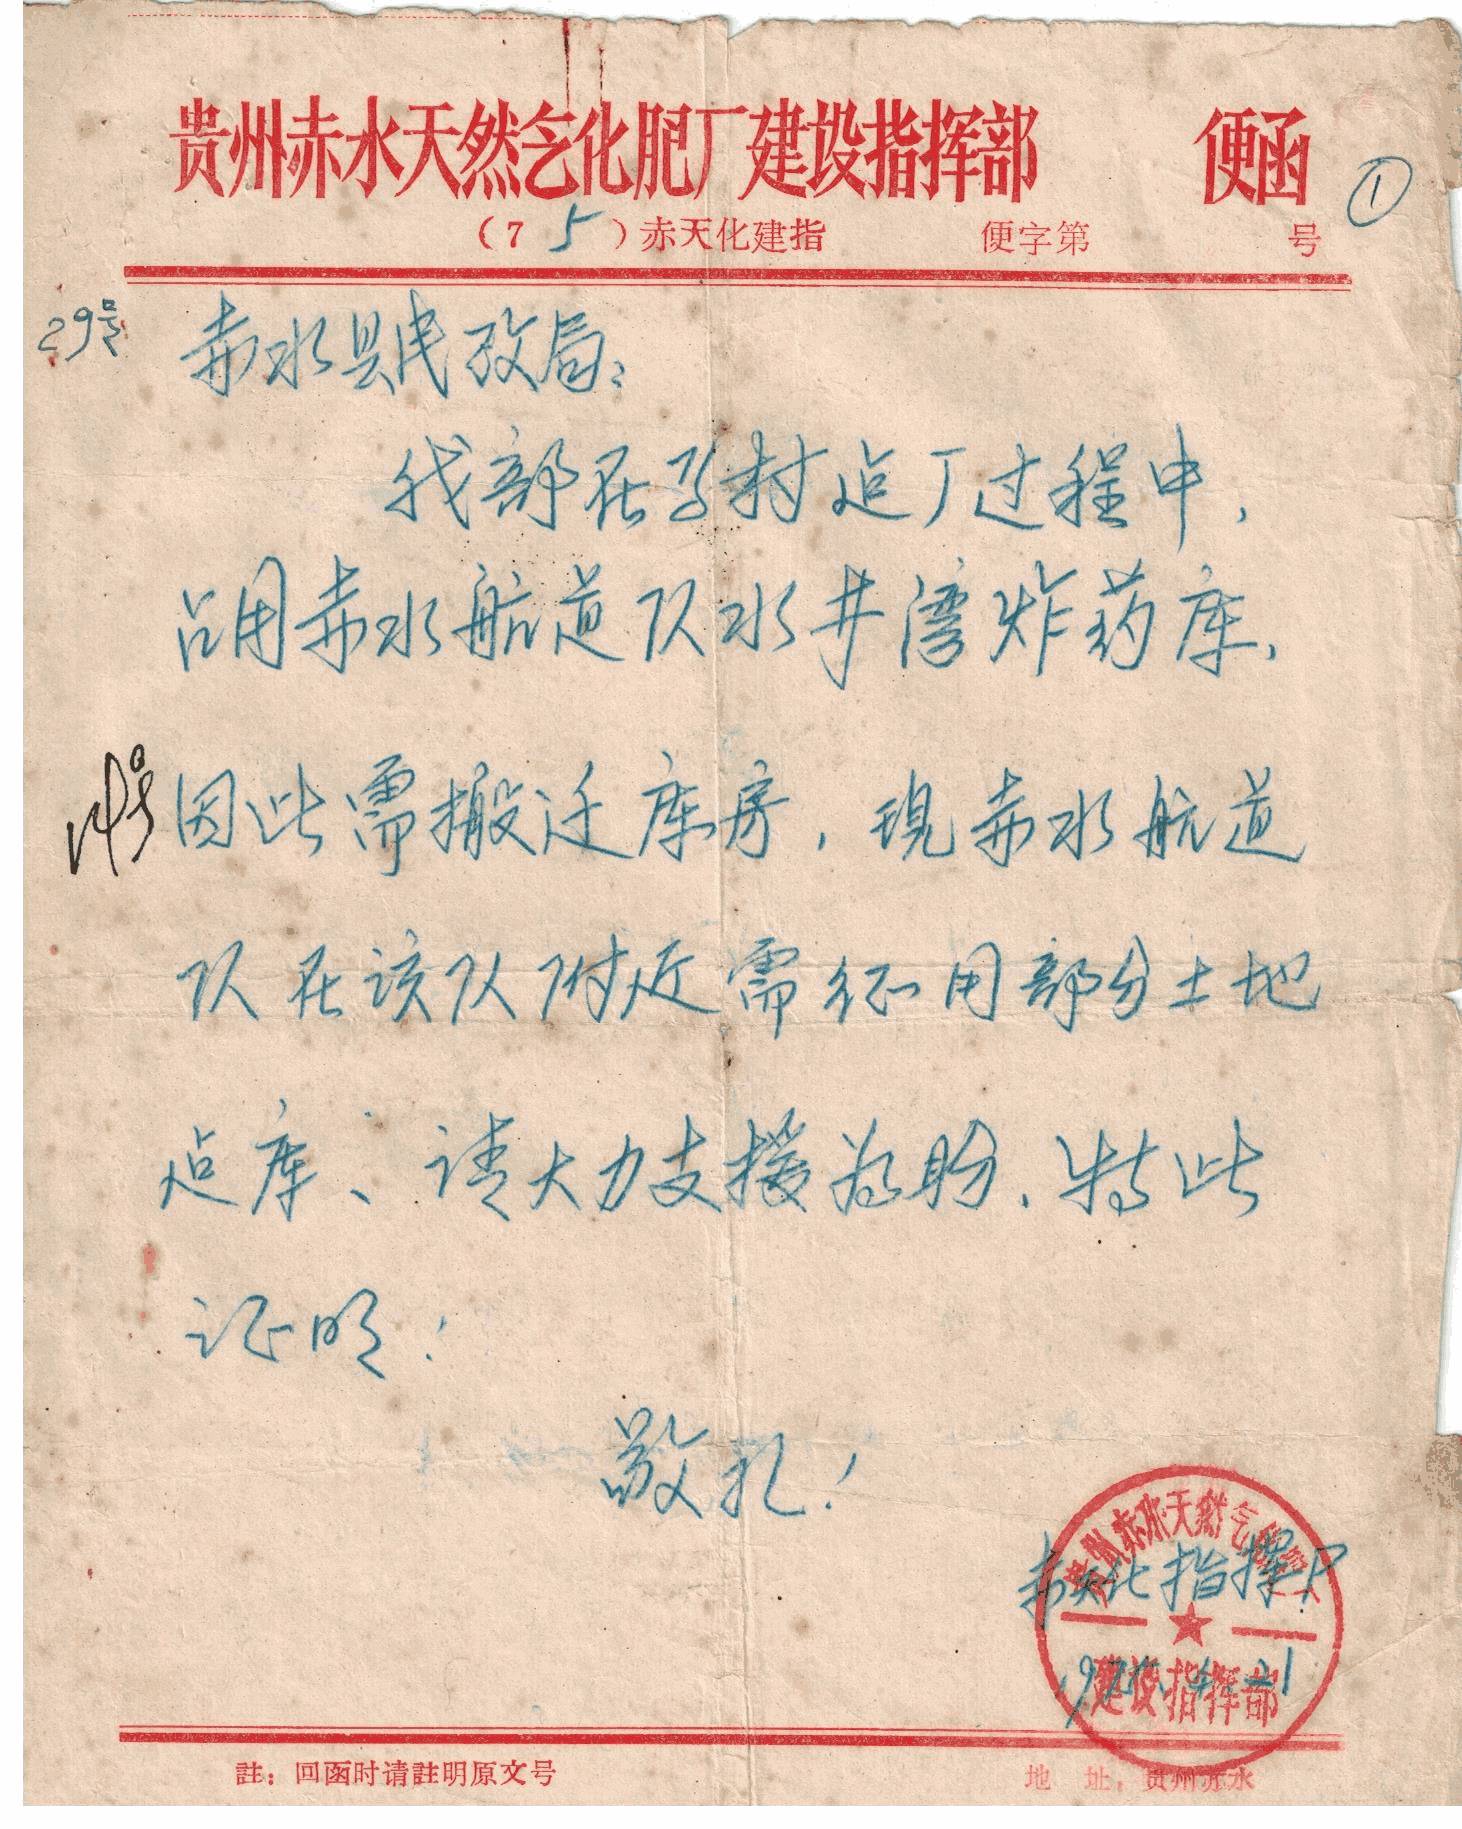 贵州赤水天然气化肥厂建设指挥部 便函
①
（75）赤天化建指 便字第 号
29号
赤水县民政局：
我部在马村定厂过程中，
占用赤水航道队水井湾炸药库，
14号
因此需搬迁库房，现赤水航道
队在该队附近需征用部分土地
建库、请大力支援为盼，特此
证明！
敬礼！
赤天化指挥P
贵州赤水天然气化肥厂
建设指挥部
註：回函时请註明原文号
地 址：贵州赤水